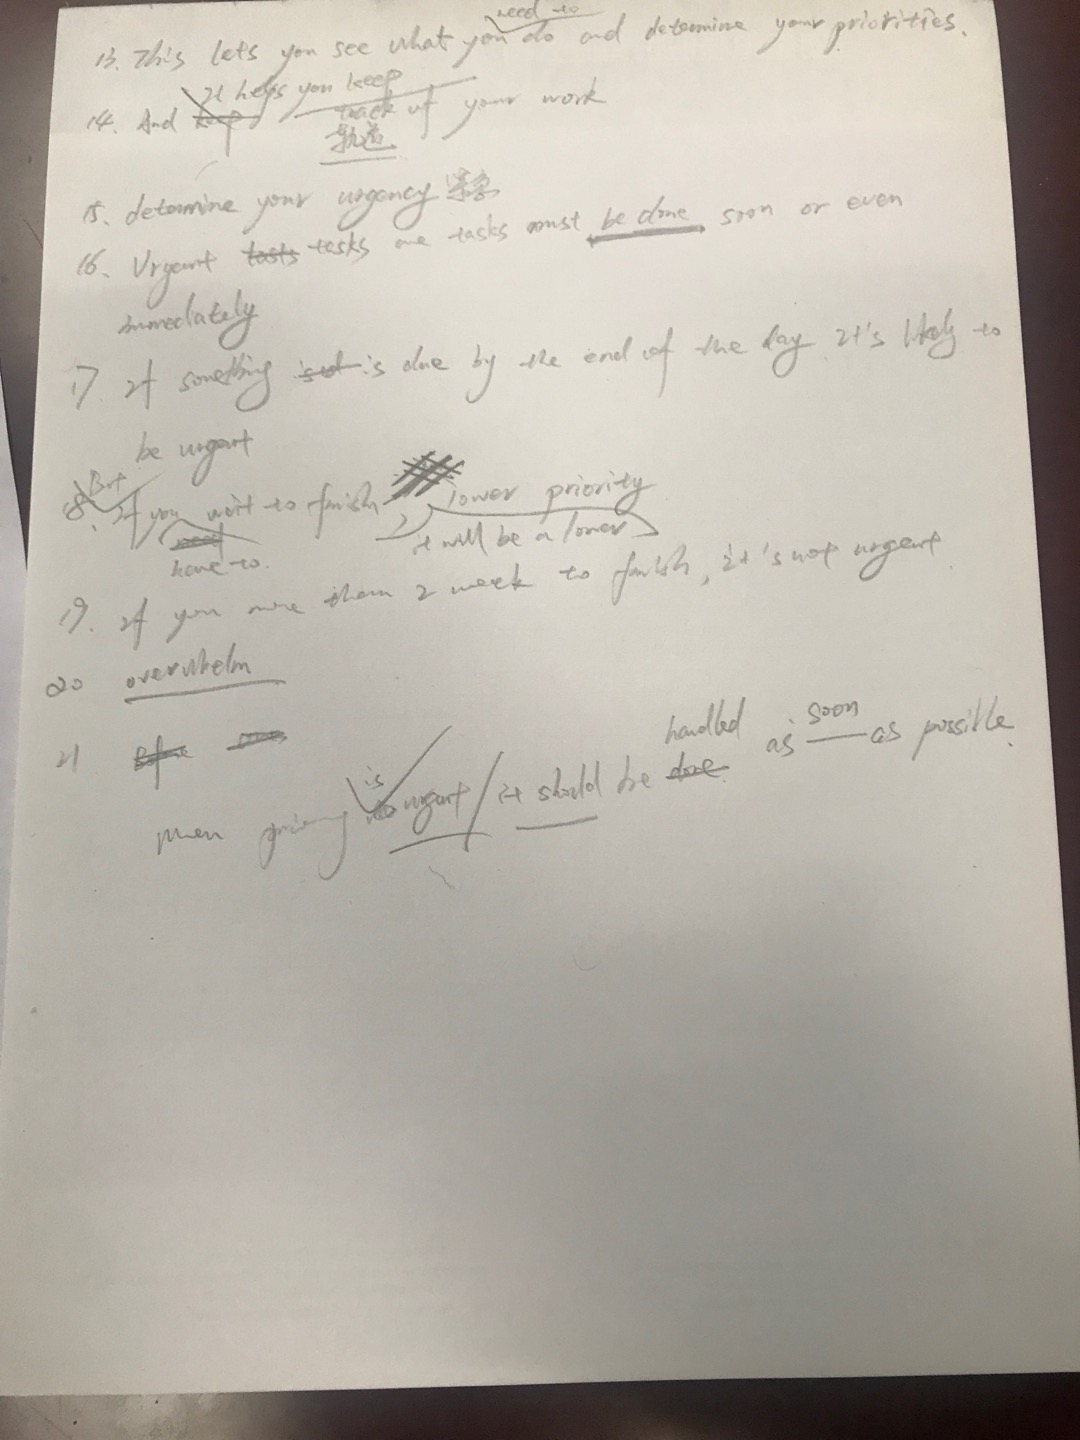 need to
13. This lets you see what you do and determine your priorities.
It helps you keep
14. And keep track of your work
轨道
15. determine your urgency 紧急
16. Urgent tasts tasks are tasks must be done soon or even
immediately
17 If something is due by the end of the day It's likely to
be urgent
But
18. If you wait to finish lower priority
need it will be a lower
have to.
19. If you more than 2 week to finish, it's not urgent
20 overwhelm
21 Before
handled as soon as possible.
is
When urgent / it should be done.